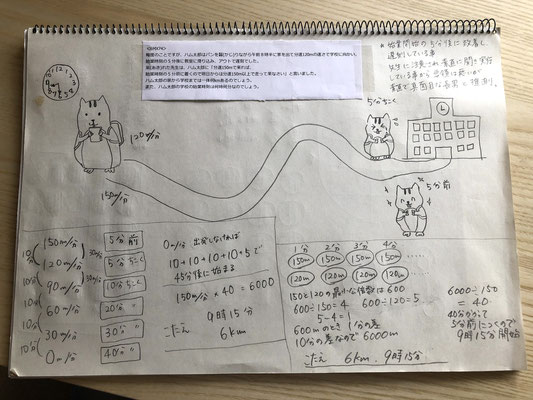 毎度のことですが、ハム太郎はパンを齧(かじ)りながら午前8時半に家を出て分速120mの速さで学校に向かい、
始業時刻の5分後に教室に滑り込み、アウトで遅刻でした。
先生は、ハム太郎に「分速150mで来れば、
始業時刻の5分前に着くので明日からは分速150m以上で走って来なさい」と言いました。
ハム太郎の家から学校までは一体何kmあるのでしょう。
また、ハム太郎の学校の始業時刻は何時何分なのでしょう。
*始業開始の5分後に到着し
遅刻している事
120m/分
150m/分
5分ちこく
5分前
150m/分
120m/分
90m/分
60m/分
30m/分
0m/分
5分前
5分ちこく
10分ちこく
20分〃
30分〃
40分〃
0m/分 出発しなければ
10+10+10+10+5で
45分後に始まる
150m/分×40=6000
9時15分
こたえ 6km
1分 2分 3分 4分
150m 150m 150m 150m
120m 120m 120m 120m
150と120の最小公倍数は600
600÷150=4 600÷120=5
5-4=1
600mのとき1分の差
10分の差なので6000m
6000÷150
=40
40分かかって
5分前につくので
9時15分開始
こたえ 6km、9時15分